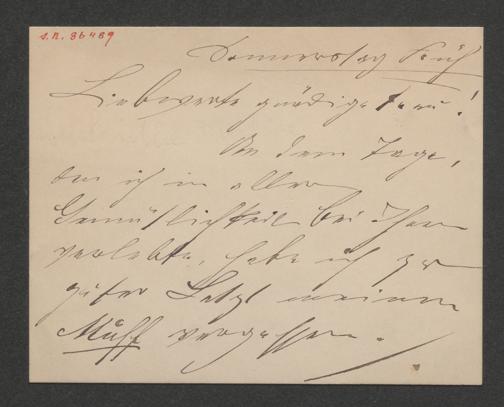 I.N. 86489
Donnerstag Früh
Liebwerte gnädige Frau!
An dem Tage,
den ich in aller
Gemütlichkeit bei Ihnen
verlebte, habe ich zu
guter Letzt meinen
Muff vergessen.